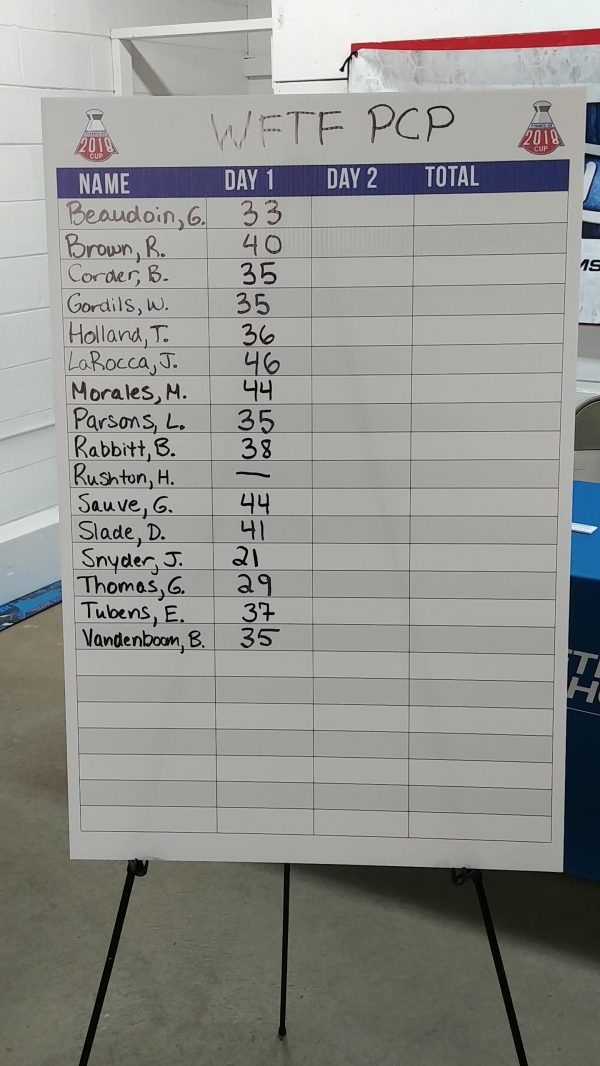 WFTF PCP
2018
CUP
2018
CUP
NAME DAY 1 DAY 2 TOTAL
Beaudoin, G. 33
Brown, R. 40
Corder, B. 35
Gordils, W. 35
Holland, T. 36
LaRocca, J. 46
Morales, M. 44
Parsons, L. 35
Rabbitt, B. 38
Rushton, H. —
Sauve, G. 44
Slade, D. 41
Snyder, J. 21
Thomas, G. 29
Tubens, E. 37
Vandenboom, B. 35